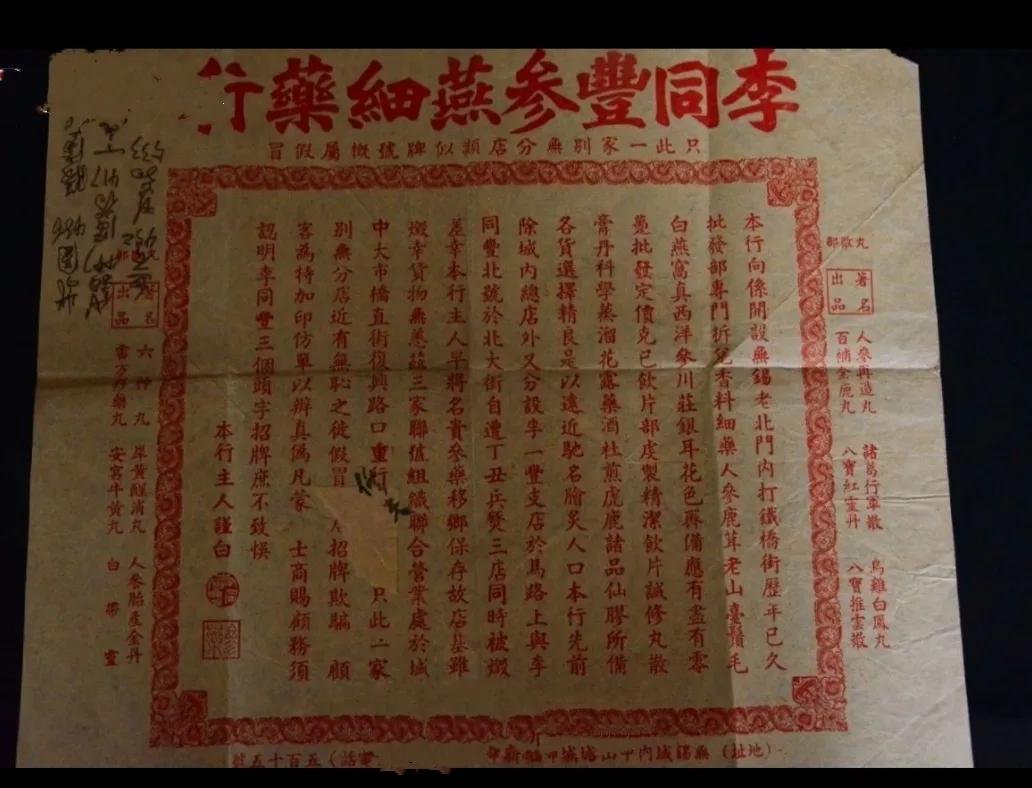 李同豐參燕細藥行
只此一家別無分店類似牌號概屬假冒
丸散部
著名出品
人參再造丸
百補全鹿丸
諸葛行軍散
八寶紅靈丹
烏雞白鳳丸
八寶推雲散
本行向係開設無錫老北門內打鐵橋街歷年已久
批發部專門拆兌香料細藥人參鹿茸老山臺鬚毛
白燕窩真西洋參川莊銀耳花色齊備應有盡有零
躉批發定價克己飲片部虔製精潔飲片誠修丸散
膏丹科學蒸溜花露藥酒杜煎虎鹿諸品仙膠所備
各貨選擇精良是以遠近馳名膾炙人口本行先前
除城內總店外又分設李一豐支店於馬路上與李
同豐北號於北大街自遭丁丑兵燹三店同時被燬
差幸本行主人早將名貴參藥移鄉保存故店基雖
燬幸貨物無恙茲三家聯號組織聯合營業處於城
中大市橋直街復興路口重行 只此一家
別無分店近有無恥之徒假冒 招牌欺騙 顧
客為特加印仿單以辨真偽凡蒙 士商賜顧務須
認明李同豐三個頭字招牌庶不致悞
本行主人謹白
部
著名出品
六神丸
雷萬應藥丸
犀黃醒消丸
安宮牛黃丸
人參胎產金丹
白帶靈
(地址) 無錫城內中山
電話)五百十五號